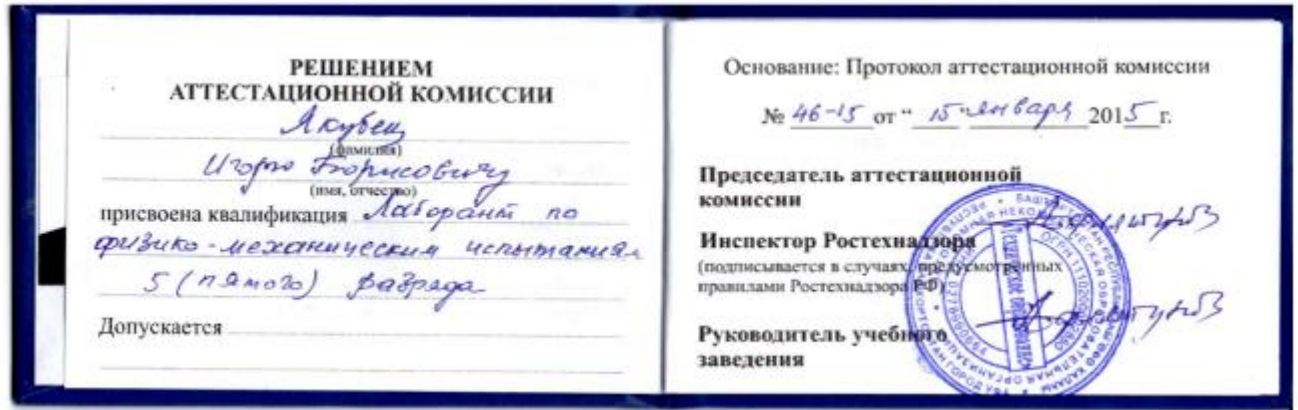 РЕШЕНИЕМ
АТТЕСТАЦИОННОЙ КОМИССИИ
Якубец
(фамилия)
Игорю Борисовичу
(имя, отчество)
присвоена квалификация Лаборант по
физико-механическим испытаниям
5 (пятого) разряда
Допускается
Основание: Протокол аттестационной комиссии
№ 46-15 от “ 15 ” января 2015 г.
Председатель аттестационной
комиссии
Инспектор Ростехнадзора
(подписывается в случаях, предусмотренных
правилами Ростехнадзора РФ)
Руководитель учебного
заведения